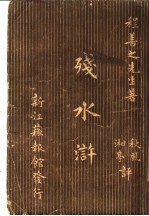 程善之先生著
殘水滸
秋風
湘君評
新江蘇報館發行